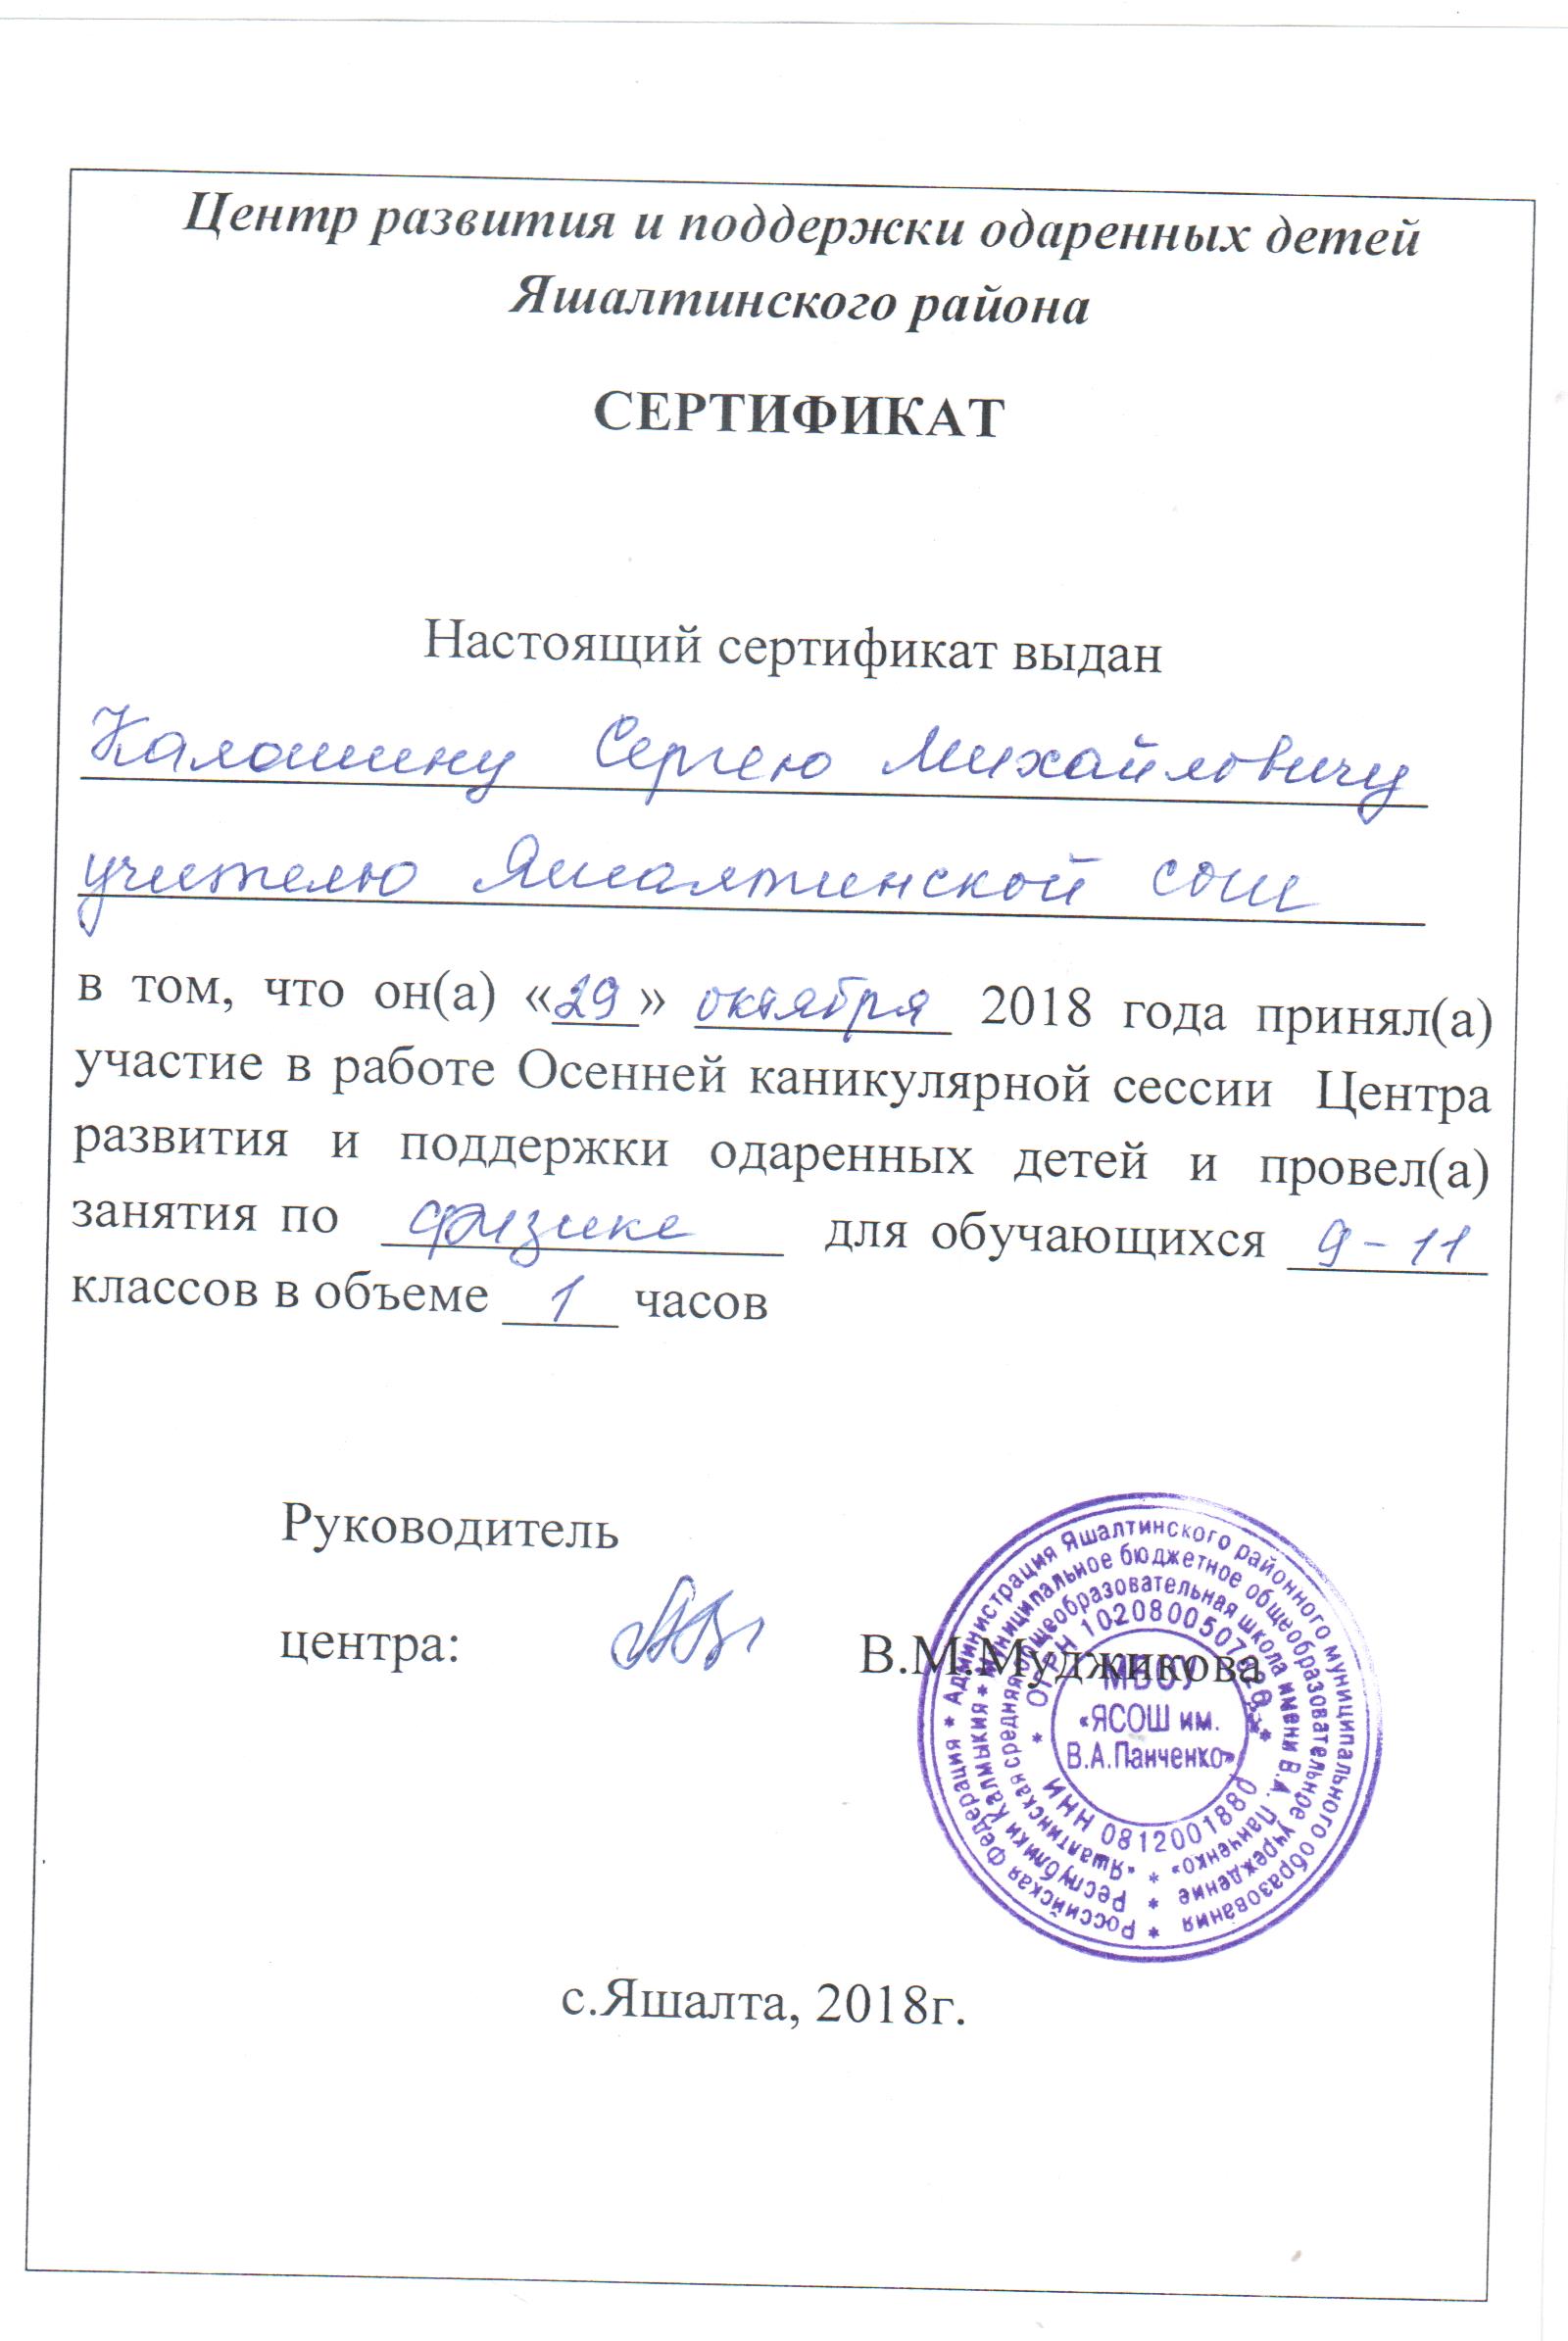 Центр развития и поддержки одаренных детей
Яшалтинского района
СЕРТИФИКАТ
Настоящий сертификат выдан
Калошину Сергею Михайловичу
учителю Яшалтинской сош
в том, что он(а) «29» октября 2018 года принял(а)
участие в работе Осенней каникулярной сессии Центра
развития и поддержки одаренных детей и провел(а)
занятия по физике для обучающихся 9-11
классов в объеме 1 часов
Руководитель
центра: В.М.Муджикова
* Российская Федерация * Администрация Яшалтинского районного муниципального образования
* Республики Калмыкия * Муниципальное бюджетное общеобразовательное учреждение
* «Яшалтинская средняя общеобразовательная школа имени В.А. Панченко»
* ОГРН *
ИНН 0812001880
МБОУ
«ЯСОШ им.
В.А.Панченко»
с.Яшалта, 2018г.